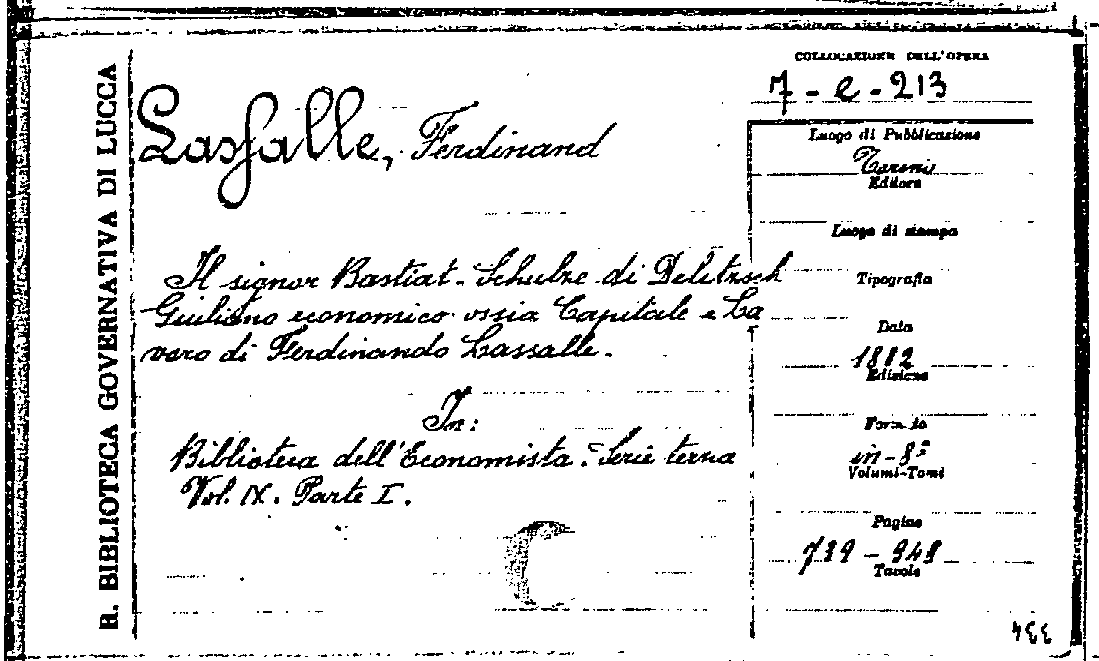 R. BIBLIOTECA GOVERNATIVA DI LUCCA
COLLOCAZIONE DELL'OPERA
7 - e - 213
Lassalle, Ferdinand
Luogo di Pubblicazione
Torino
Editore
Luogo di stampa
Il signor Bastiat-Schulze di Delitzsch
Giuliano economico ossia Capitale e La
voro di Ferdinando Lassalle.
Tipografia
Data
1882
Edizione
In:
Biblioteca dell'Economista. Serie terza
Vol. IX. Parte I.
Formato
in-8º
Volumi-Tomi
Pagine
Tavole